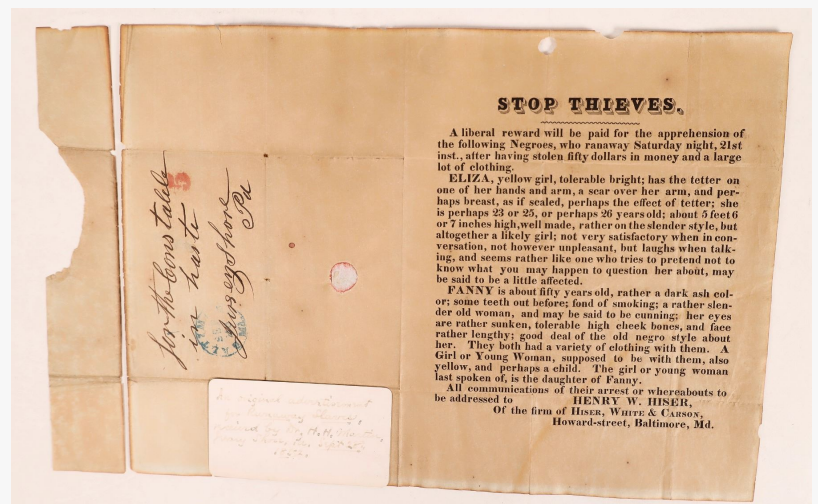 for the Constable
in haste
Jersey Shore
Pa
STOP THIEVES.
A liberal reward will be paid for the apprehension of
the following Negroes, who ranaway Saturday night, 21st
inst., after having stolen fifty dollars in money and a large
lot of clothing.
ELIZA, yellow girl, tolerable bright; has the tetter on
one of her hands and arm, a scar over her arm, and per-
haps breast, as if scaled, perhaps the effect of tetter; she
is perhaps 23 or 25, or perhaps 26 years old; about 5 feet 6
or 7 inches high, well made, rather on the slender style, but
altogether a likely girl; not very satisfactory when in con-
versation, not however unpleasant, but laughs when talk-
ing, and seems rather like one who tries to pretend not to
know what you may happen to question her about, may
be said to be a little affected.
FANNY is about fifty years old, rather a dark ash col-
or; some teeth out before; fond of smoking; a rather slen-
der old woman, and may be said to be cunning; her eyes
are rather sunken, tolerable high cheek bones, and face
rather lengthy; good deal of the old negro style about
her. They both had a variety of clothing with them. A
Girl or Young Woman, supposed to be with them, also
yellow, and perhaps a child. The girl or young woman
last spoken of, is the daughter of Fanny.
All communications of their arrest or whereabouts to
be addressed to HENRY W. HISER,
Of the firm of HISER, WHITE & CARSON,
Howard-street, Baltimore, Md.